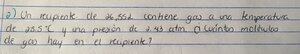 2) Un recipiente de 26,55L contiene gas a una temperatura
de 25.5°C y una presión de 2.43 atm ¿Cuántas moléculas
de gas hay en el recipiente?